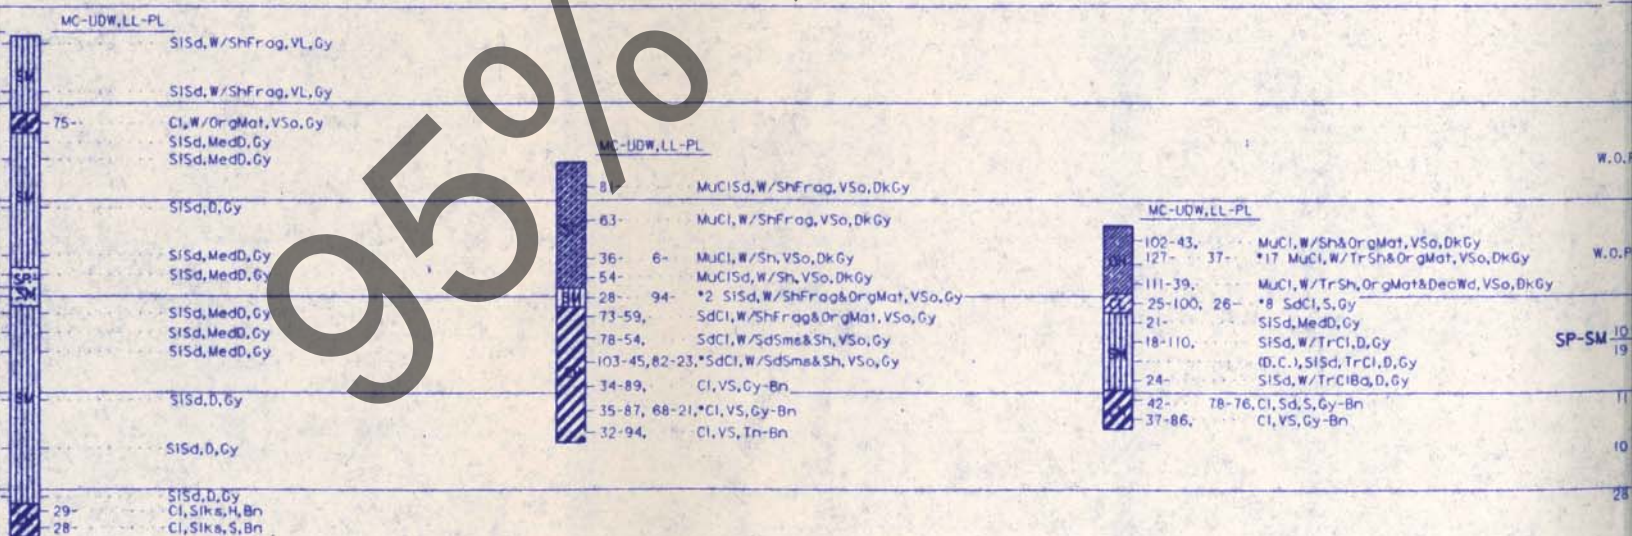 MC-UDW,LL-PL
SiSd,W/ShFrag,VL,Gy
SM
SiSd,W/ShFrag,VL,Gy
75-- Cl,W/OrgMat,VSo,Gy
SiSd,MedD,Gy
SiSd,MedD,Gy
SM
SiSd,D,Gy
SiSd,MedD,Gy
SiSd,MedD,Gy
SP-SM
SiSd,MedD,Gy
SiSd,MedD,Gy
SiSd,MedD,Gy
SM
SiSd,D,Gy
SiSd,D,Gy
SiSd,D,Gy
29- Cl,Slks,H,Bn
28- Cl,Slks,S,Bn
95%
MC-UDW,LL-PL
81- MuClSd,W/ShFrag,VSo,DkGy
63- MuCl,W/ShFrag,VSo,DkGy
36- 6- MuCl,W/Sh,VSo,DkGy
54- MuClSd,W/Sh,VSo,DkGy
SM
28-- 94- *2 SiSd,W/ShFrag&OrgMat,VSo,Gy
73-59, SdCl,W/ShFrag&OrgMat,VSo,Gy
78-54, SdCl,W/SdSms&Sh,VSo,Gy
103-45,82-23,*SdCl,W/SdSms&Sh,VSo,Gy
34-89, Cl,VS,Gy-Bn
35-87, 68-21,*Cl,VS,Gy-Bn
32-94, Cl,VS,Tn-Bn
MC-UDW,LL-PL
102-43, MuCl,W/Sh&OrgMat,VSo,DkGy
OH
127- 37- *17 MuCl,W/TrSh&OrgMat,VSo,DkGy
111-39, MuCl,W/TrSh,OrgMat&DecWd,VSo,DkGy
CL
25-100, 26- *8 SdCl,S,Gy
21- SiSd,MedD,Gy
18-110, SiSd,W/TrCl,D,Gy
SM
(D.C.),SiSd,TrCl,D,Gy
24- SiSd,W/TrClBa,D,Gy
42- 78-76,Cl,Sd,S,Gy-Bn
37-86, Cl,VS,Gy-Bn
W.O.
W.O.
SP-SM 10
19
11
10
28